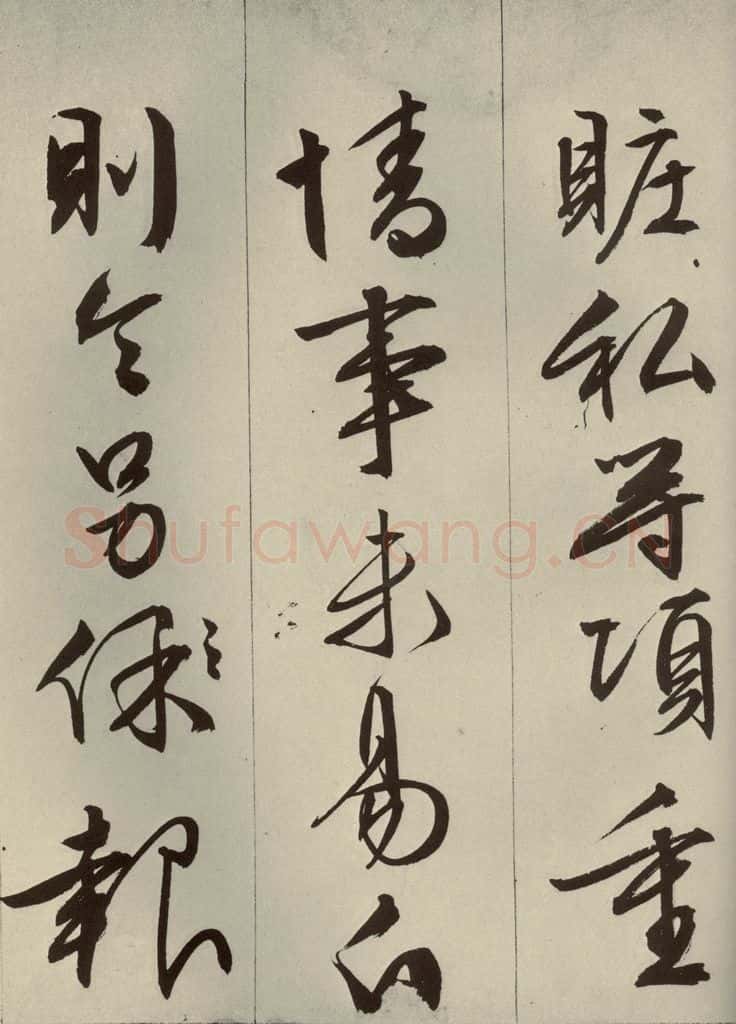 賍私等項重
情事未易
則令另保報
Shufawang.CN